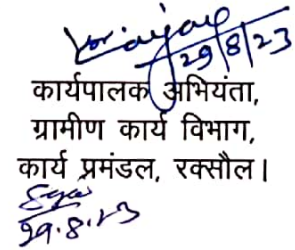 29/8/23
कार्यपालक अभियंता,
ग्रामीण कार्य विभाग,
कार्य प्रमंडल, रक्सौल।
29.8.23